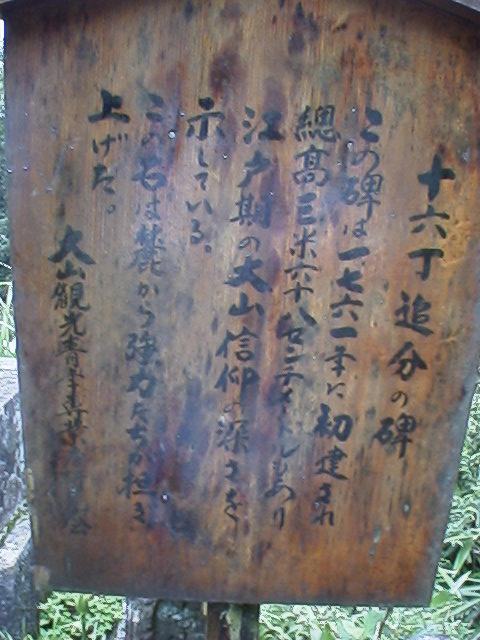 十六丁追分の碑
この碑は一七六一年に初建され
總高三米六十八センチメートルもあり
江戸期の大山信仰の深さを
示している。
この石は麓から強力たちが担ぎ
上げた。
大山観光青年専業